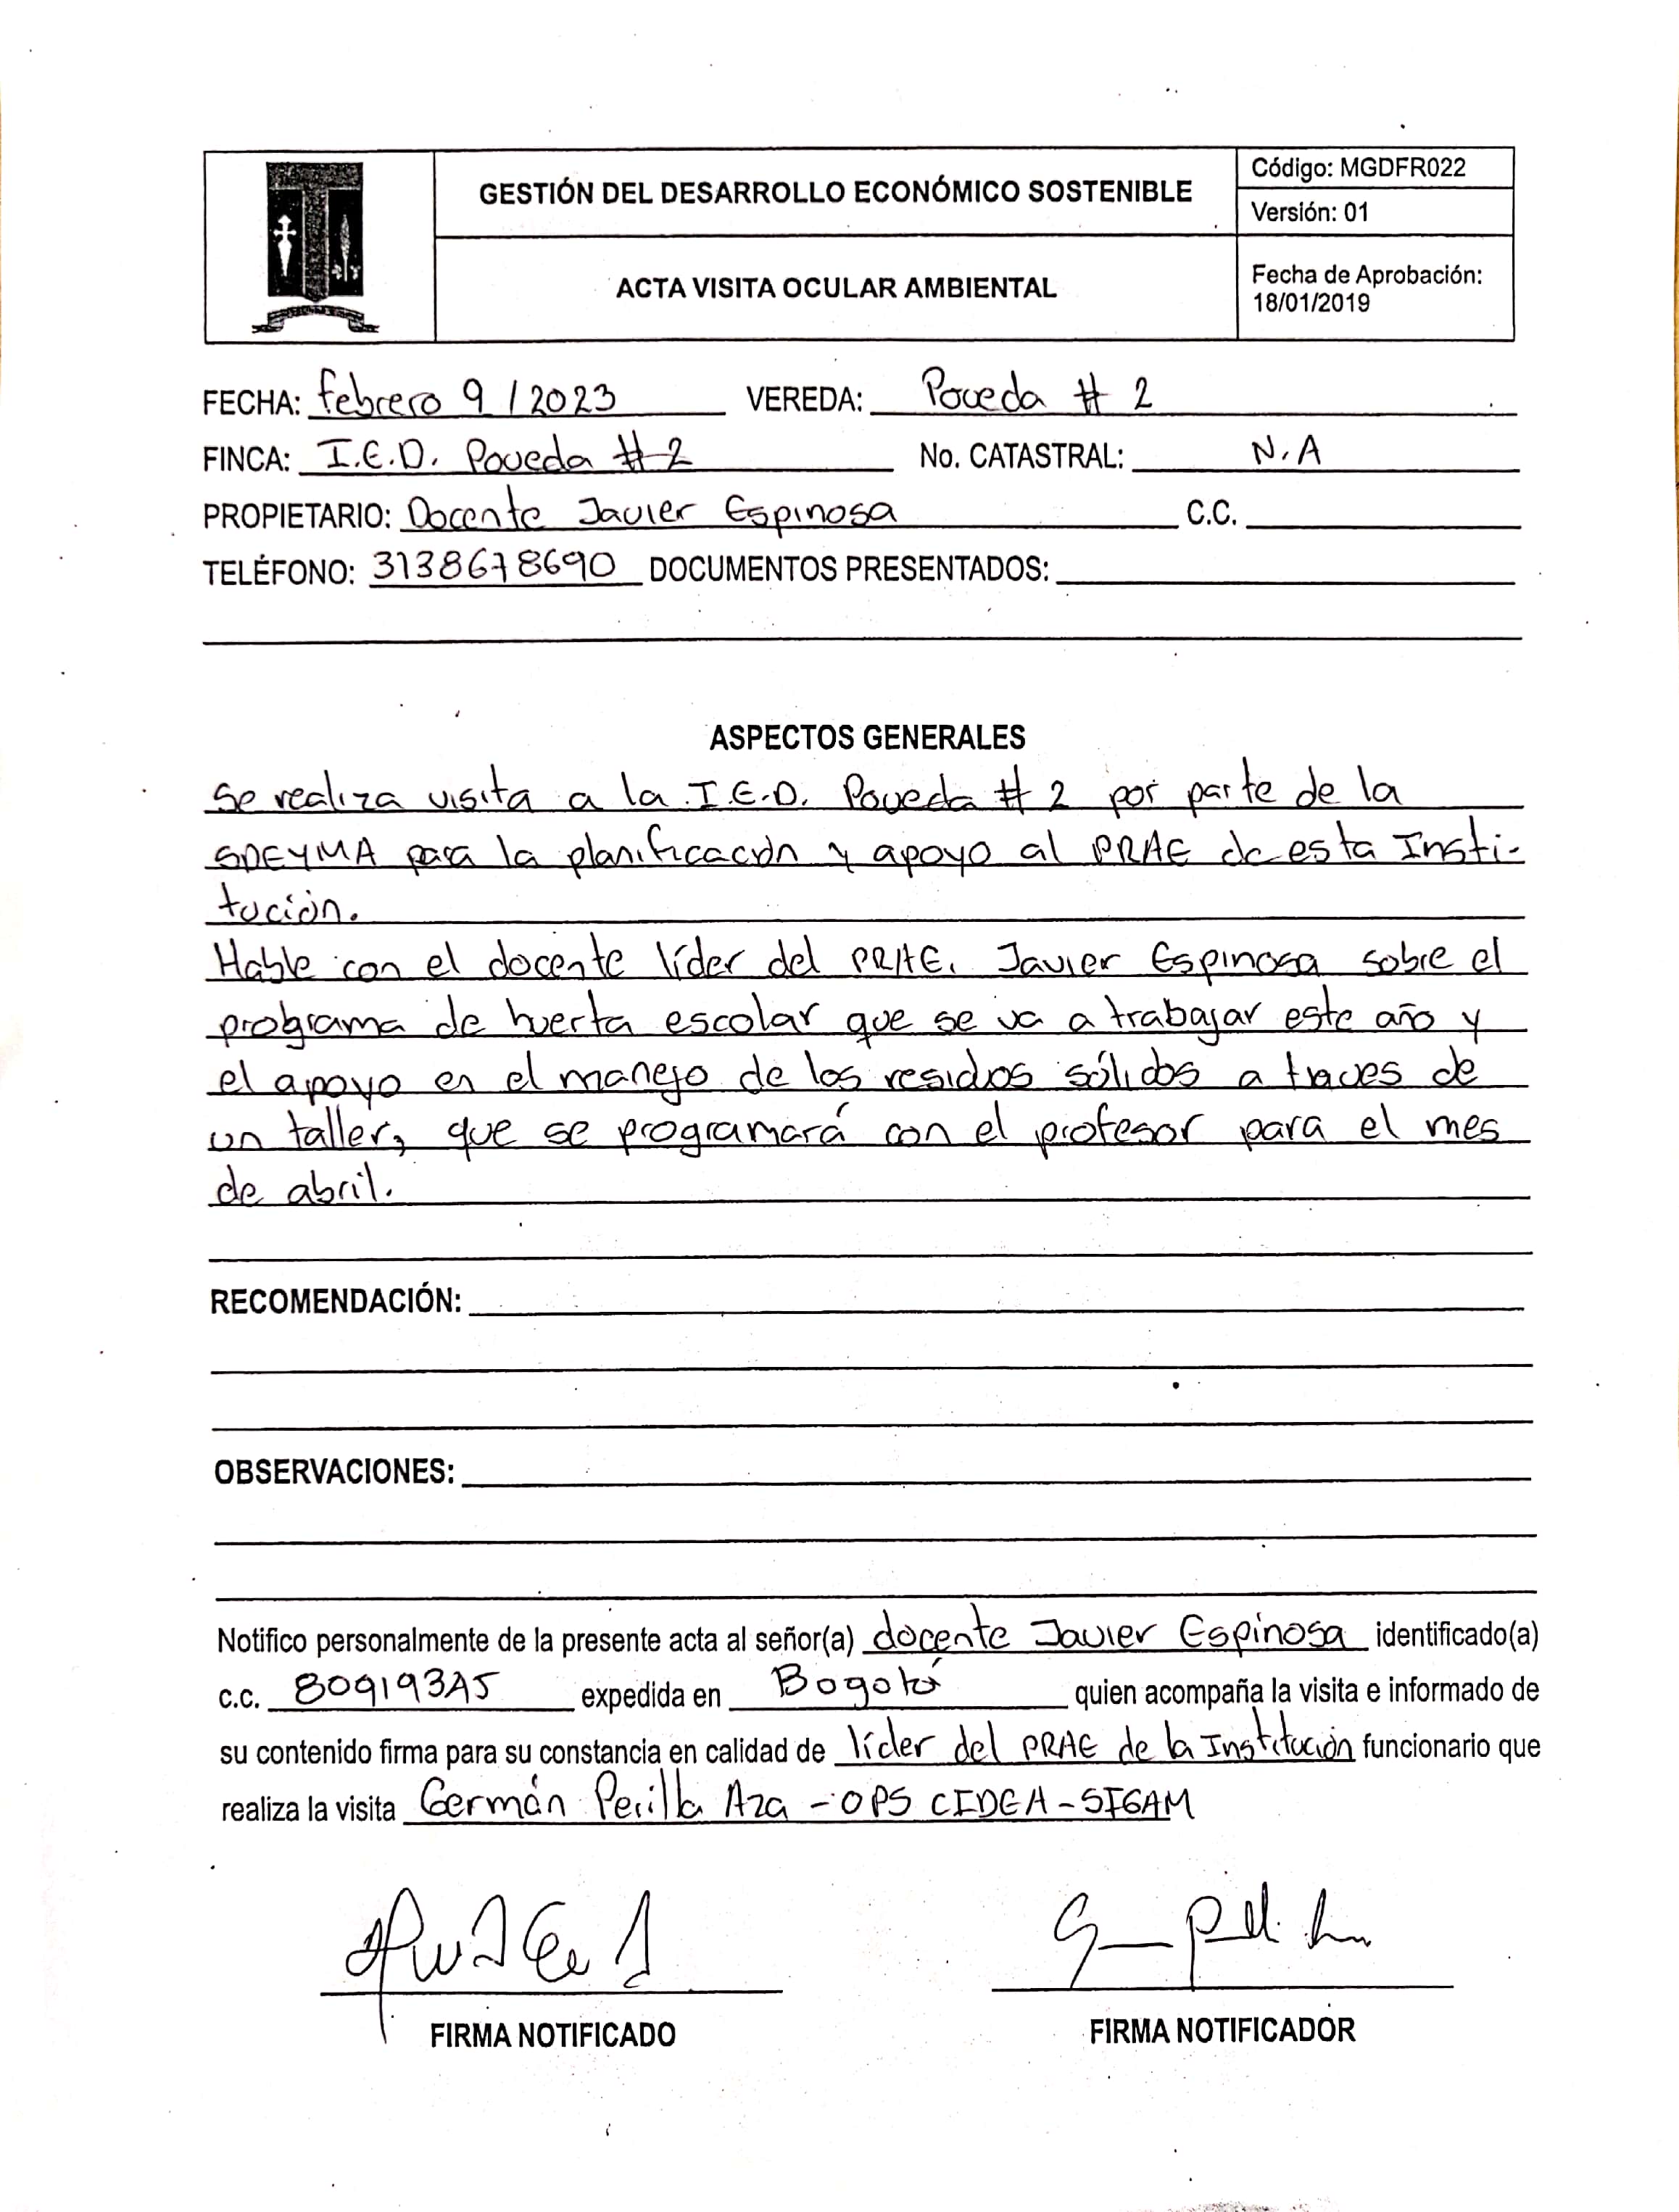 GESTIÓN DEL DESARROLLO ECONÓMICO SOSTENIBLE
Código: MGDFR022
Versión: 01
ACTA VISITA OCULAR AMBIENTAL
Fecha de Aprobación:
18/01/2019
FECHA: febrero 9 / 2023 VEREDA: Poveda # 2
FINCA: I.E.D. Poveda # 2 No. CATASTRAL: N.A
PROPIETARIO: Docente Javier Espinosa C.C.
TELÉFONO: 3138678690 DOCUMENTOS PRESENTADOS:
ASPECTOS GENERALES
Se realiza visita a la I.E.D. Poveda # 2 por parte de la
SDEYMA para la planificación y apoyo al PRAE de esta Insti-
tución.
Hable con el docente líder del PRAE. Javier Espinosa sobre el
programa de huerta escolar que se va a trabajar este año y
el apoyo en el manejo de los residuos sólidos a traves de
un taller, que se programará con el profesor para el mes
de abril.
RECOMENDACIÓN:
OBSERVACIONES:
Notifico personalmente de la presente acta al señor(a) docente Javier Espinosa identificado(a)
c.c. expedida en Bogotá quien acompaña la visita e informado de
su contenido firma para su constancia en calidad de líder del PRAE de la Institución funcionario que
realiza la visita Germán Perilla Aza - OPS CIDEA - SIGAM
FIRMA NOTIFICADO
FIRMA NOTIFICADOR